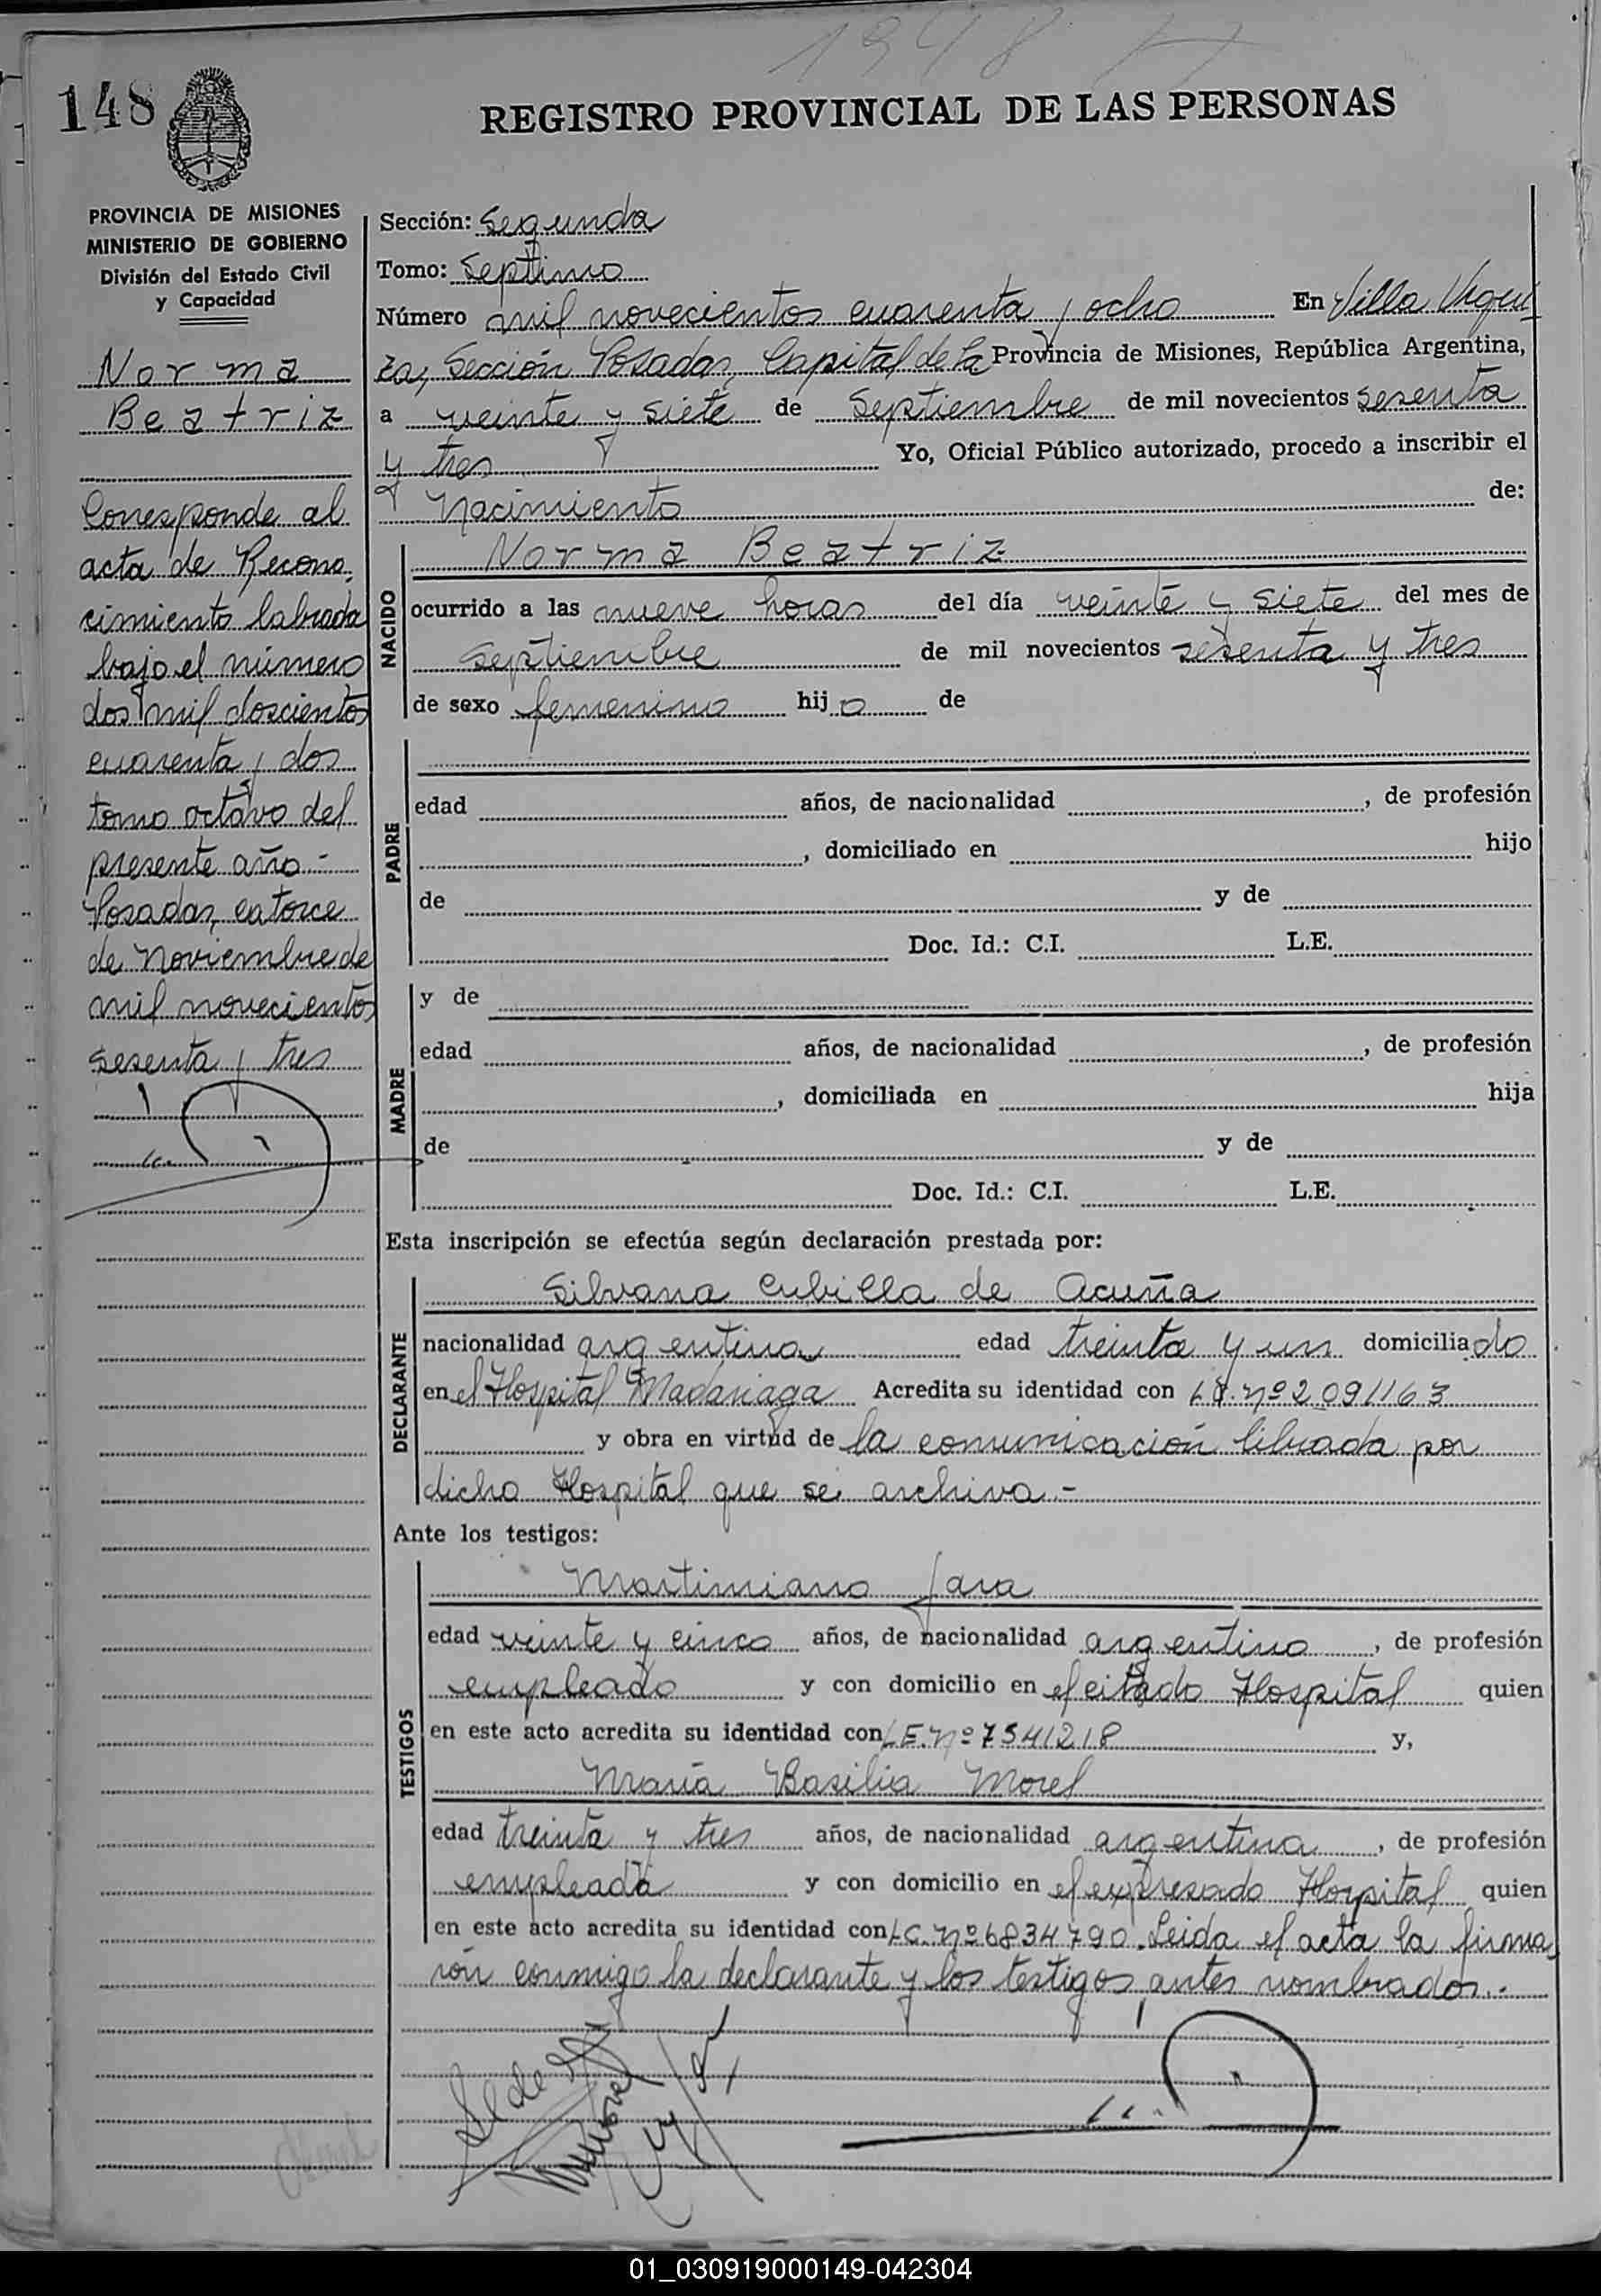 1948
148
REGISTRO PROVINCIAL DE LAS PERSONAS
PROVINCIA DE MISIONES
MINISTERIO DE GOBIERNO
División del Estado Civil
y Capacidad
Norma
Beatriz
Corresponde al
acta de Recono-
cimiento labrada
bajo el número
dos mil doscientos
cuarenta y dos
tomo octavo del
presente año.-
Posadas, catorce
de Noviembre de
mil novecientos
sesenta y tres
Sección: Segunda
Tomo: Septimo
Número mil novecientos cuarenta y ocho En Villa Urqui-
za, Sección Posadas, Capital de la Provincia de Misiones, República Argentina,
a veinte y siete de Septiembre de mil novecientos sesenta
y tres Yo, Oficial Público autorizado, procedo a inscribir el
Nacimiento de:
NACIDO
Norma Beatriz
ocurrido a las nueve horas del día veinte y siete del mes de
septiembre de mil novecientos sesenta y tres
de sexo femenino hij o de
PADRE
edad años, de nacionalidad , de profesión
, domiciliado en hijo
de y de
Doc. Id.: C.I. L.E.
MADRE
y de
edad años, de nacionalidad , de profesión
, domiciliada en hija
de y de
Doc. Id.: C.I. L.E.
Esta inscripción se efectúa según declaración prestada por:
DECLARANTE
Silvana Cubilla de Acuña
nacionalidad argentina edad treinta y un domiciliado
en el Hospital Madariaga Acredita su identidad con nº 2.091163
y obra en virtud de la comunicación librada por
dicho Hospital que se archiva.-
Ante los testigos:
TESTIGOS
Martimiano Jara
edad veinte y cinco años, de nacionalidad argentino , de profesión
empleado y con domicilio en el citado Hospital quien
en este acto acredita su identidad con L.E. nº 7541218 y,
María Basilia Morel
edad treinta y tres años, de nacionalidad argentina , de profesión
empleada y con domicilio en el expresado Hospital quien
en este acto acredita su identidad con L.C. nº 6834790. Leida el acta la firma-
ron conmigo la declarante y los testigos antes nombrados.-
01_030919000149-042304